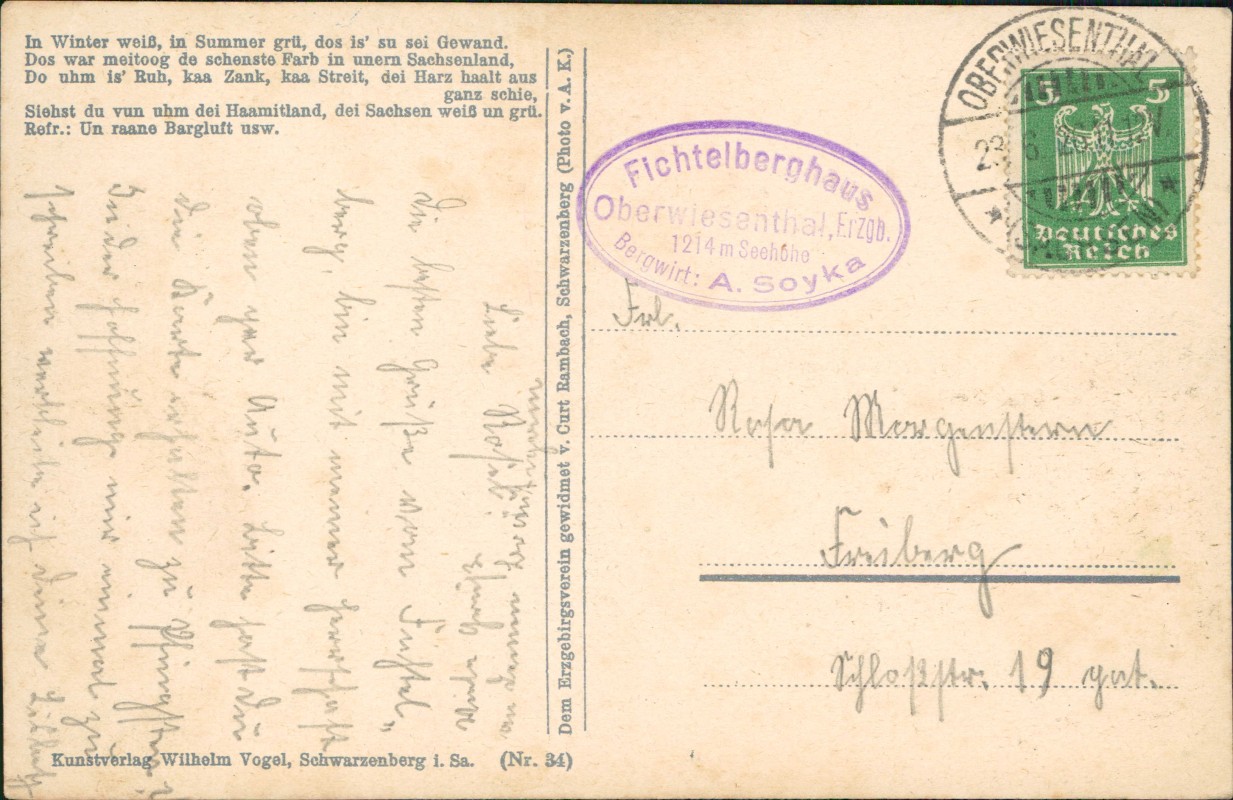 In Winter weiß, in Summer grü, dos is' su sei Gewand.
Dos war meitoog de schenste Farb in unern Sachsenland,
Do uhm is' Ruh, kaa Zank, kaa Streit, dei Harz haalt aus
ganz schie,
Siehst du vun uhm dei Haamitland, dei Sachsen weiß un grü.
Refr.: Un raane Bargluft usw.
Liebe Rosel!
die besten Grüße vom Fichtel-
berg, bin mit meiner Herrschaft
oben per Auto. Bitte hast Du
die Karte erhalten zu Pfingsten?
In der Hoffnung mir einmal zu
schreiben verbleibe ich Deine
Kunstverlag Wilhelm Vogel, Schwarzenberg i. Sa. (Nr. 34)
Dem Erzgebirgsverein gewidmet v. Curt Rambach, Schwarzenberg (Photo v. A. K.)
Fichtelberghaus
Oberwiesenthal, Erzgb.
1214 m Seehöhe
Bergwirt: A. Soyka
OBERWIESENTHAL
23. 6.
5 5
Deutsches
Reich
Frl.
Rosa Morgenstern
Freiberg
Schloßstr. 19 pat.